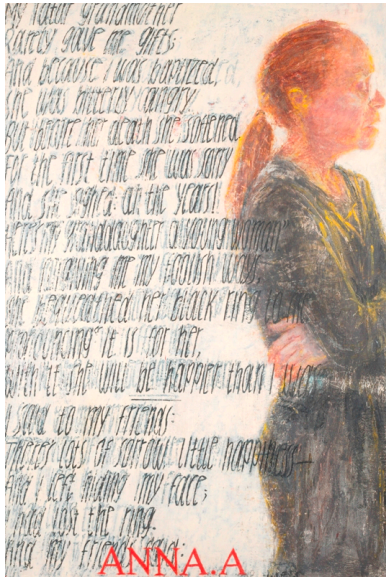 My Tatar grandmother
Rarely gave me gifts;
And because I was baptized,
She was bitterly angry.
But before her death she softened
For the first time she was sorry
And she sighed: oh the years!
Here's my granddaughter a young woman
And forgiving me my foolish ways
She bequeathed her black ring to me
Pronouncing "it is for her,
With it she will be happier than I
I said to my friends:
There's lots of sorrow, little happiness—
And I left hiding my face;
I had lost the ring.
And my friends said:
ANNA.A